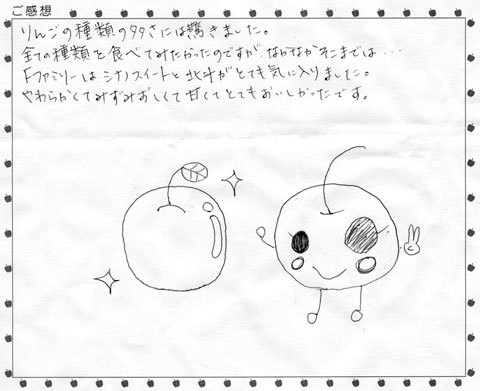 ご感想
りんごの種類の多さには驚きました。
全ての種類を食べてみたかったのですが、なかなかそこまでは・・・
Fファミリーはシナノスイートと北斗がとても気に入りました。
やわらかくてみずみずしくて甘くてとてもおいしかったです。